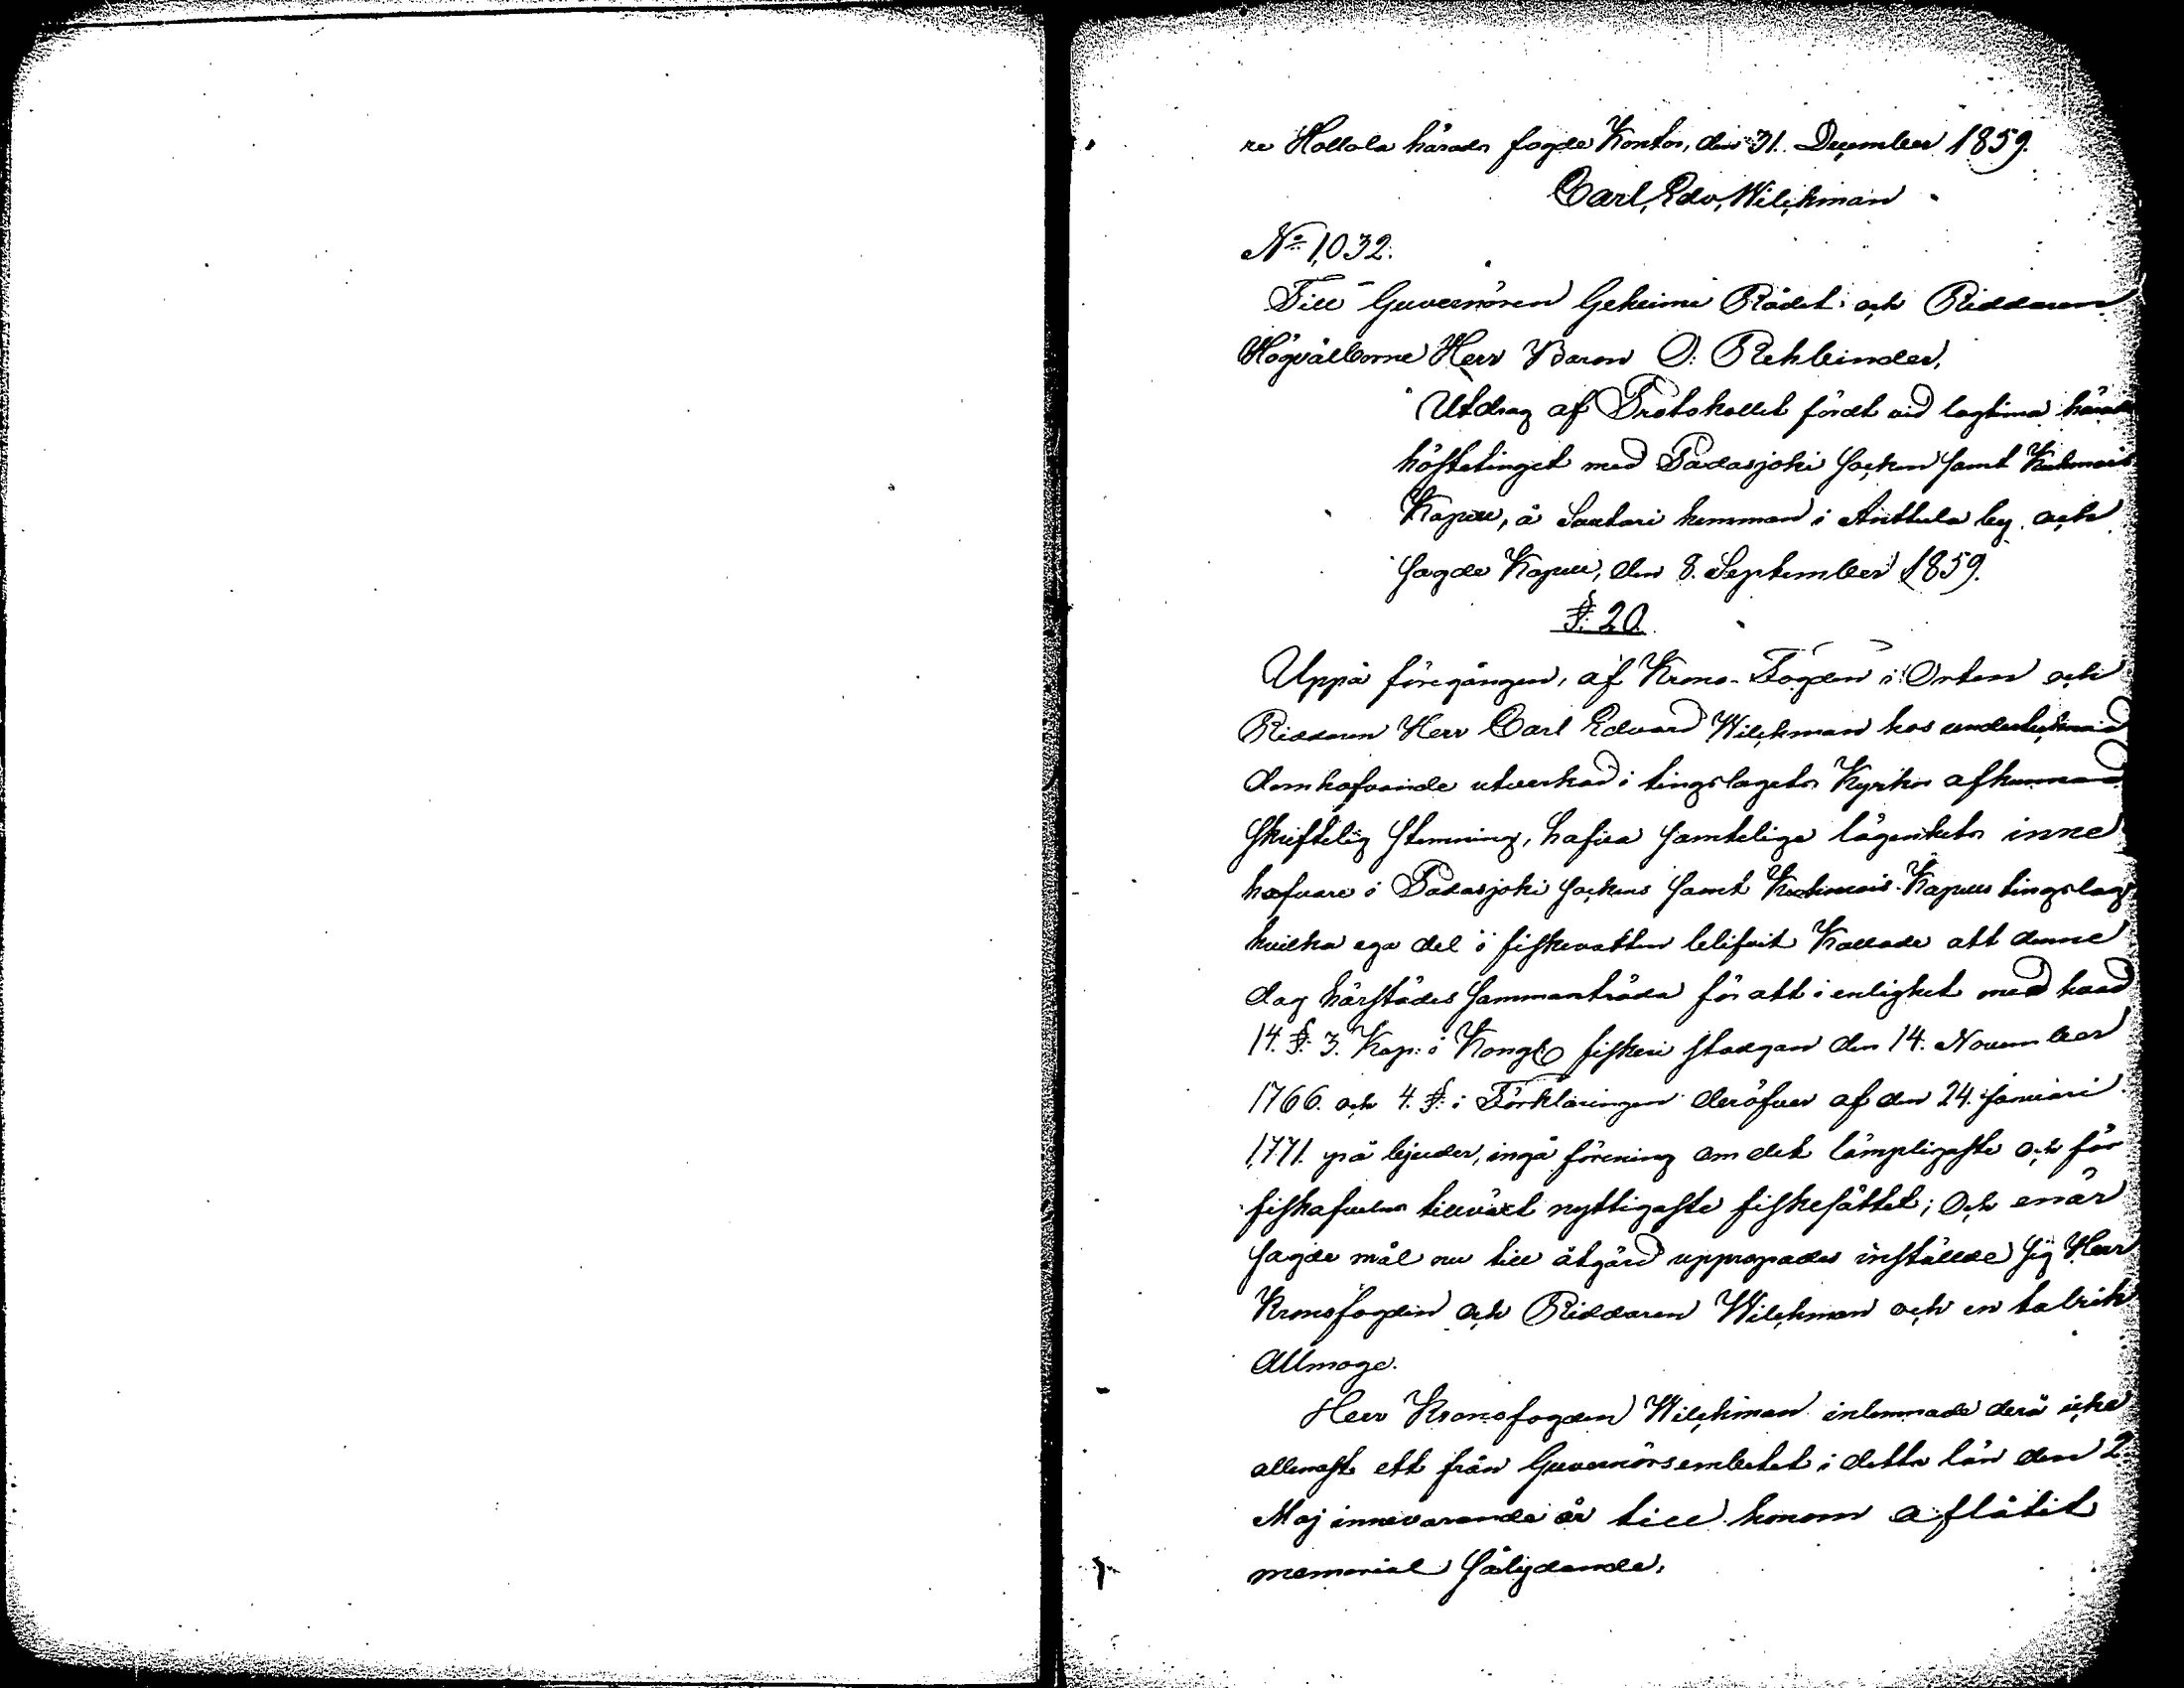 re Hollola härads fogde Kontor, den 31. December 1859.
Carl, Edv, Wilckman
No 1,032.
Till Guvernören Geheime Rådet och Riddaren
Högvälborne Herr Baron O: Rehbinder,
Utdrag af Protokollet fördt vid lagtima härads
höstetinget med Padasjoki Socken samt Kuhmois
Kapell, å Sautari hemman i Anttula by och
sagde Kapell, den 8. September 1859.
§: 20.
Uppå föregången, af Krono-Fogden i Orten och
Riddaren Herr Carl Edvard Wilckman hos undertecknad
domhafvande utverkad i tingslagets Kyrkor afkunnad
skriftelig stemning, hafva samtelige lägenhets inne
hafvare i Padasjoki sockens samt Kuhmois Kapells tingslag
hvilka ega del i fiskevatten blifvit Kallade att denne
dag härstädes sammanträda för att i enlighet med hvad
14. §: 3. Kap: i Kongl: fiskeri stadgan den 14. November
1766. och 4. §: i Förklaringen deröfver af den 24. Januari
1,771. på bjuder, ingå förening om det lämpligaste och för
fiskafvelns tillväxt nyttigaste fiskesättet; Och enär
sagde mål nu till åtgärd uppropades inställde sig Herr
Kronofogden och Riddaren Wilckman och en talrik
Allmoge.
Herr Kronofogden Wilckman inlemnade derå icke
allenast ett från Guvernörsembetet i detta län den 2.
Maj innevarande år till honom aflåtit
memorial sålydande,